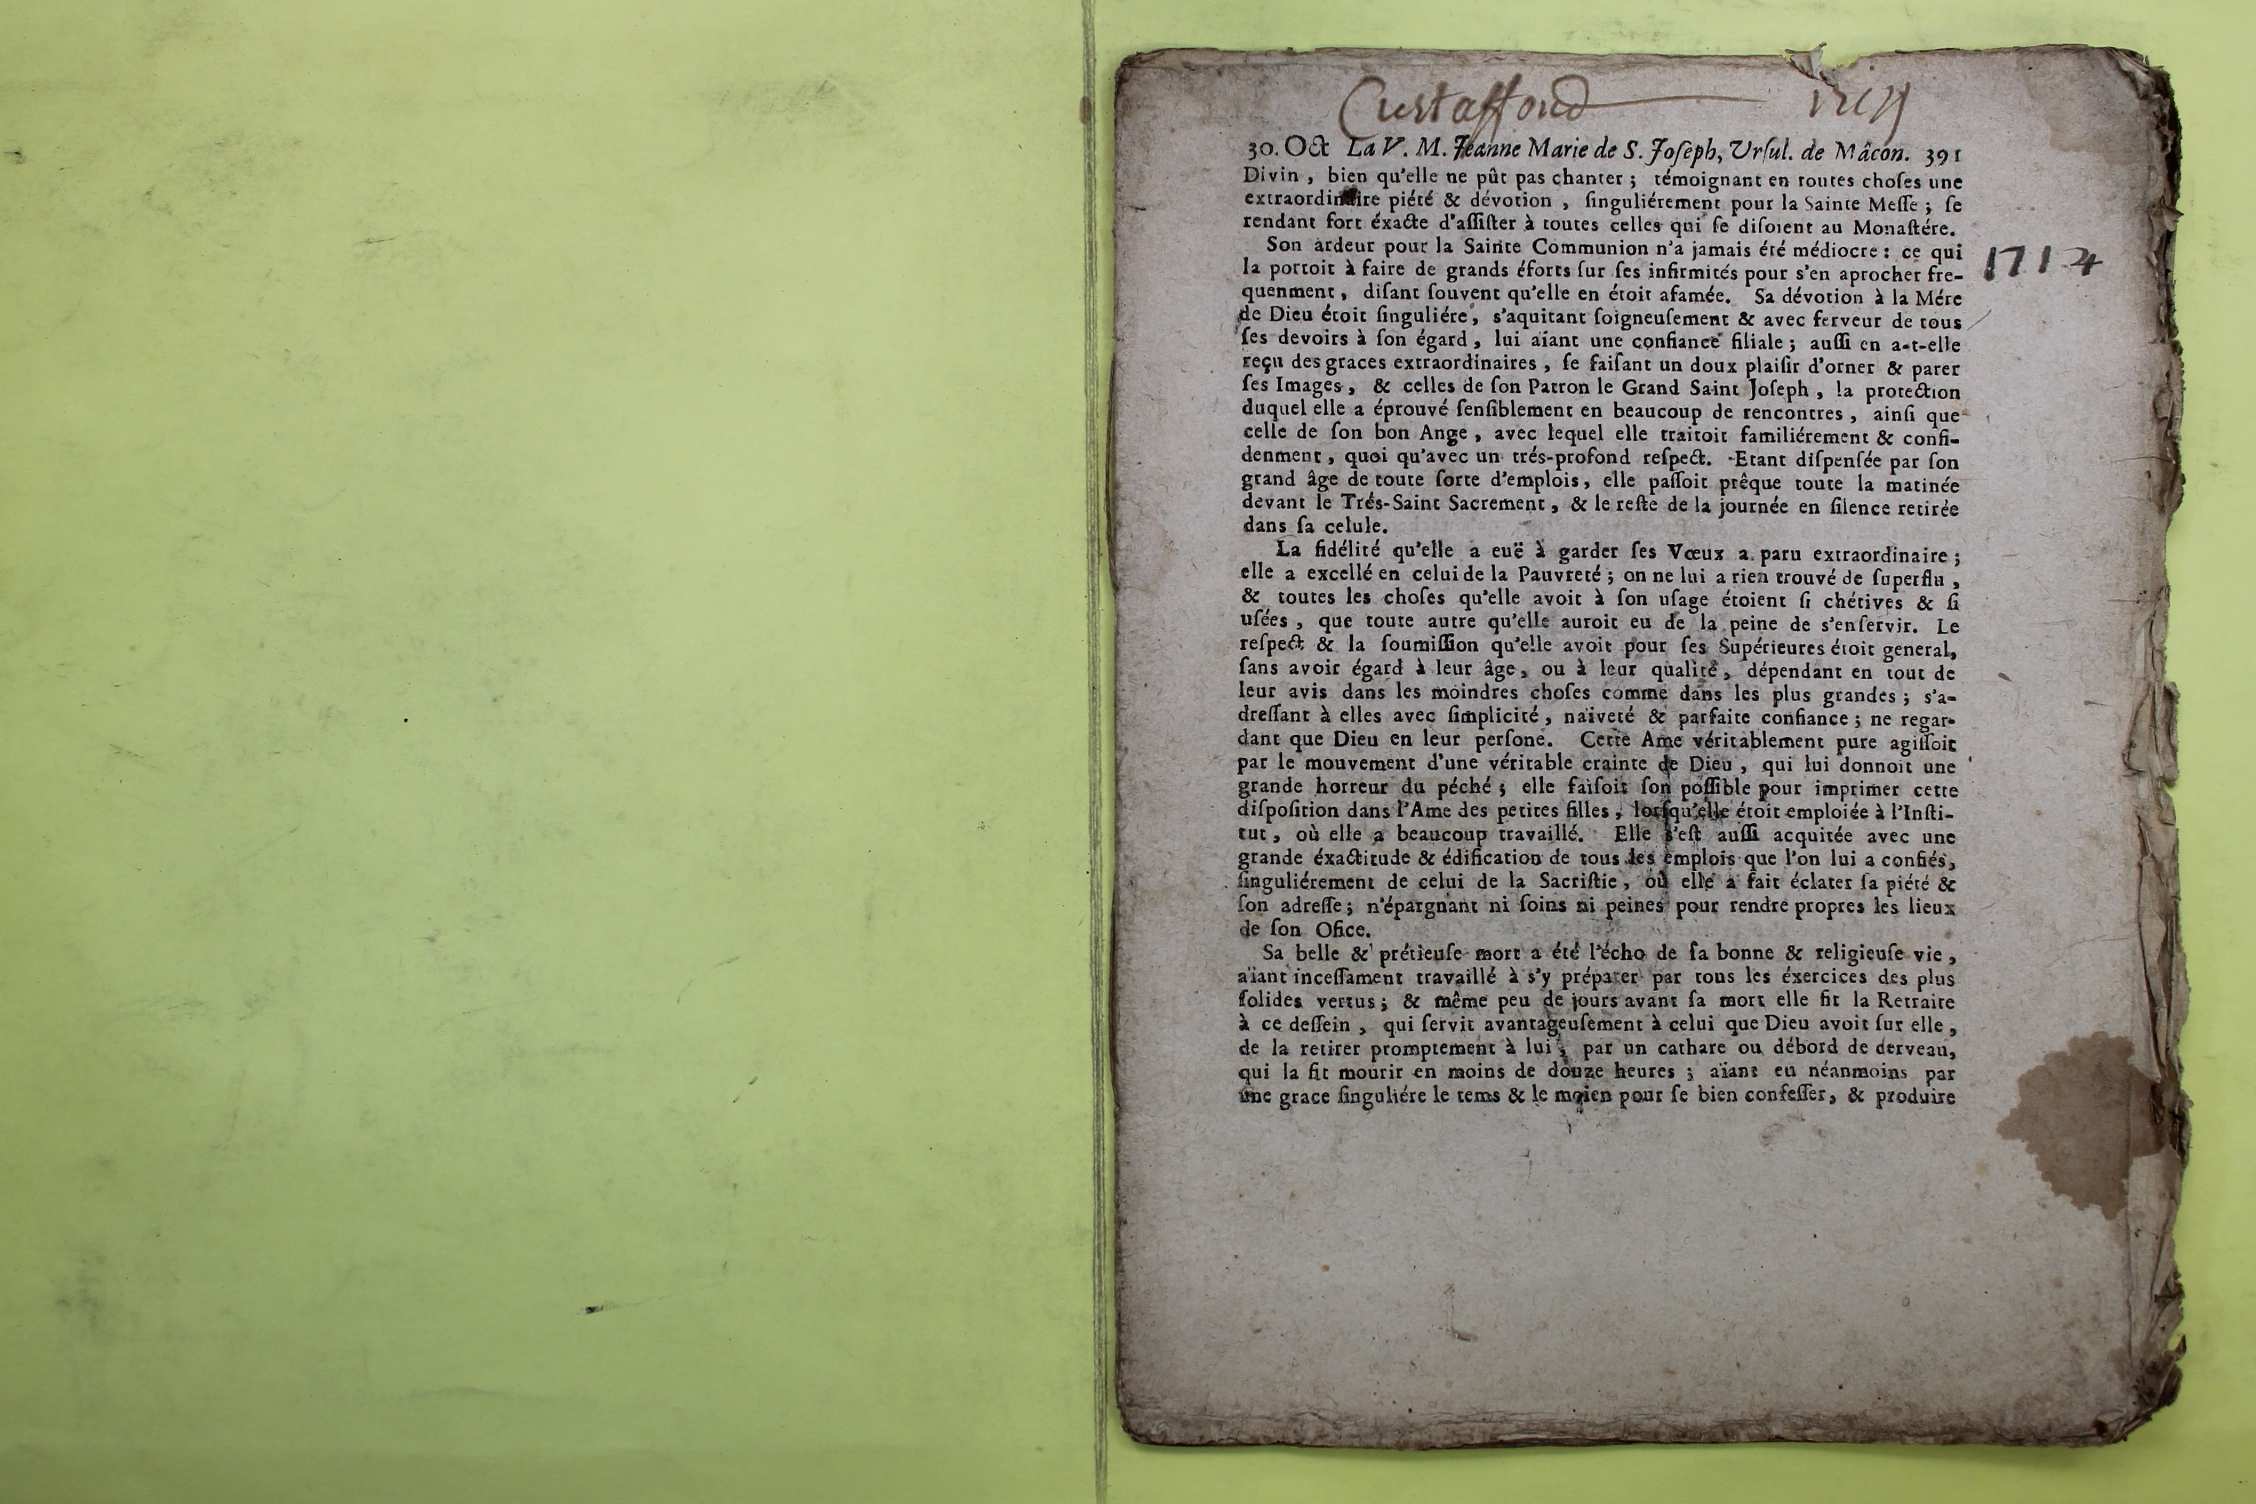 Custaffond
30. Oct La V. M. Jeanne Marie de S. Joſeph, Urſul. de Mâcon. 391
Divin, bien qu'elle ne pût pas chanter; témoignant en toutes choſes une
extraordinaire piété & dévotion, ſinguliérement pour la Sainte Meſſe; ſe
rendant fort éxacte d'aſſiſter à toutes celles qui ſe diſoient au Monaſtére.
Son ardeur pour la Sainte Communion n'a jamais été médiocre: ce qui
1714
la portoit à faire de grands éforts ſur ſes infirmités pour s'en aprocher fre-
quenment, diſant ſouvent qu'elle en étoit afamée. Sa dévotion à la Mére
de Dieu étoit ſinguliére, s'aquitant ſoigneuſement & avec ferveur de tous
ſes devoirs à ſon égard, lui aïant une confiance filiale; auſſi en a-t-elle
reçu des graces extraordinaires, ſe faiſant un doux plaiſir d'orner & parer
ſes Images, & celles de ſon Patron le Grand Saint Joſeph, la protection
duquel elle a éprouvé ſenſiblement en beaucoup de rencontres, ainſi que
celle de ſon bon Ange, avec lequel elle traitoit familiérement & confi-
denment, quoi qu'avec un trés-profond reſpect. Etant diſpenſée par ſon
grand âge de toute ſorte d'emplois, elle paſſoit prêque toute la matinée
devant le Trés-Saint Sacrement, & le reſte de la journée en ſilence retirée
dans ſa celule.
La fidélité qu'elle a euë à garder ſes Vœux a paru extraordinaire;
elle a excellé en celui de la Pauvreté; on ne lui a rien trouvé de ſuperflu,
& toutes les choſes qu'elle avoit à ſon uſage étoient ſi chétives & ſi
uſées, que toute autre qu'elle auroit eu de la peine de s'enſervir. Le
reſpect & la ſoumiſſion qu'elle avoit pour ſes Supérieures étoit general,
ſans avoir égard à leur âge, ou à leur qualité, dépendant en tout de
leur avis dans les moindres choſes comme dans les plus grandes; s'a-
dreſſant à elles avec ſimplicité, naïveté & parfaite confiance; ne regar-
dant que Dieu en leur perſone. Cette Ame véritablement pure agiſſoit
par le mouvement d'une véritable crainte de Dieu, qui lui donnoit une
grande horreur du péché; elle faiſoit ſon poſſible pour imprimer cette
diſpoſition dans l'Ame des petites filles, lorſqu'elle étoit emploiée à l'Inſti-
tut, où elle a beaucoup travaillé. Elle s'eſt auſſi acquitée avec une
grande éxactitude & édification de tous les emplois que l'on lui a confiés,
ſinguliérement de celui de la Sacriſtie, où elle a fait éclater ſa piété &
ſon adreſſe; n'épargnant ni ſoins ni peines pour rendre propres les lieux
de ſon Ofice.
Sa belle & prétieuſe mort a été l'écho de ſa bonne & religieuſe vie,
aïant inceſſament travaillé à s'y préparer par tous les éxercices des plus
ſolides vertus; & même peu de jours avant ſa mort elle fit la Retraite
à ce deſſein, qui ſervit avantageuſement à celui que Dieu avoit ſur elle,
de la retirer promptement à lui, par un cathare ou débord de cerveau,
qui la fit mourir en moins de douze heures; aïant eu néanmoins par
une grace ſinguliére le tems & le moien pour ſe bien confeſſer, & produire